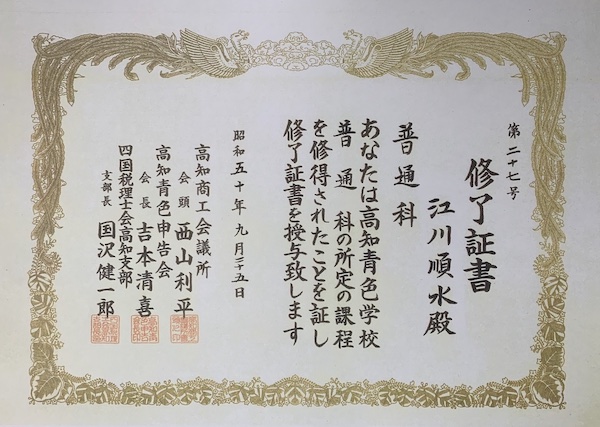 第二十七号
修了証書
江川順水殿
普通科
あなたは高知青色学校
普通科の所定の課程
を修得されたことを証し
修了証書を授与致します
昭和五十年九月二十五日
高知商工会議所
会頭 西山利平
高知青色申告会
会長 吉本清喜
四国税理士会高知支部
支部長 国沢健一郎